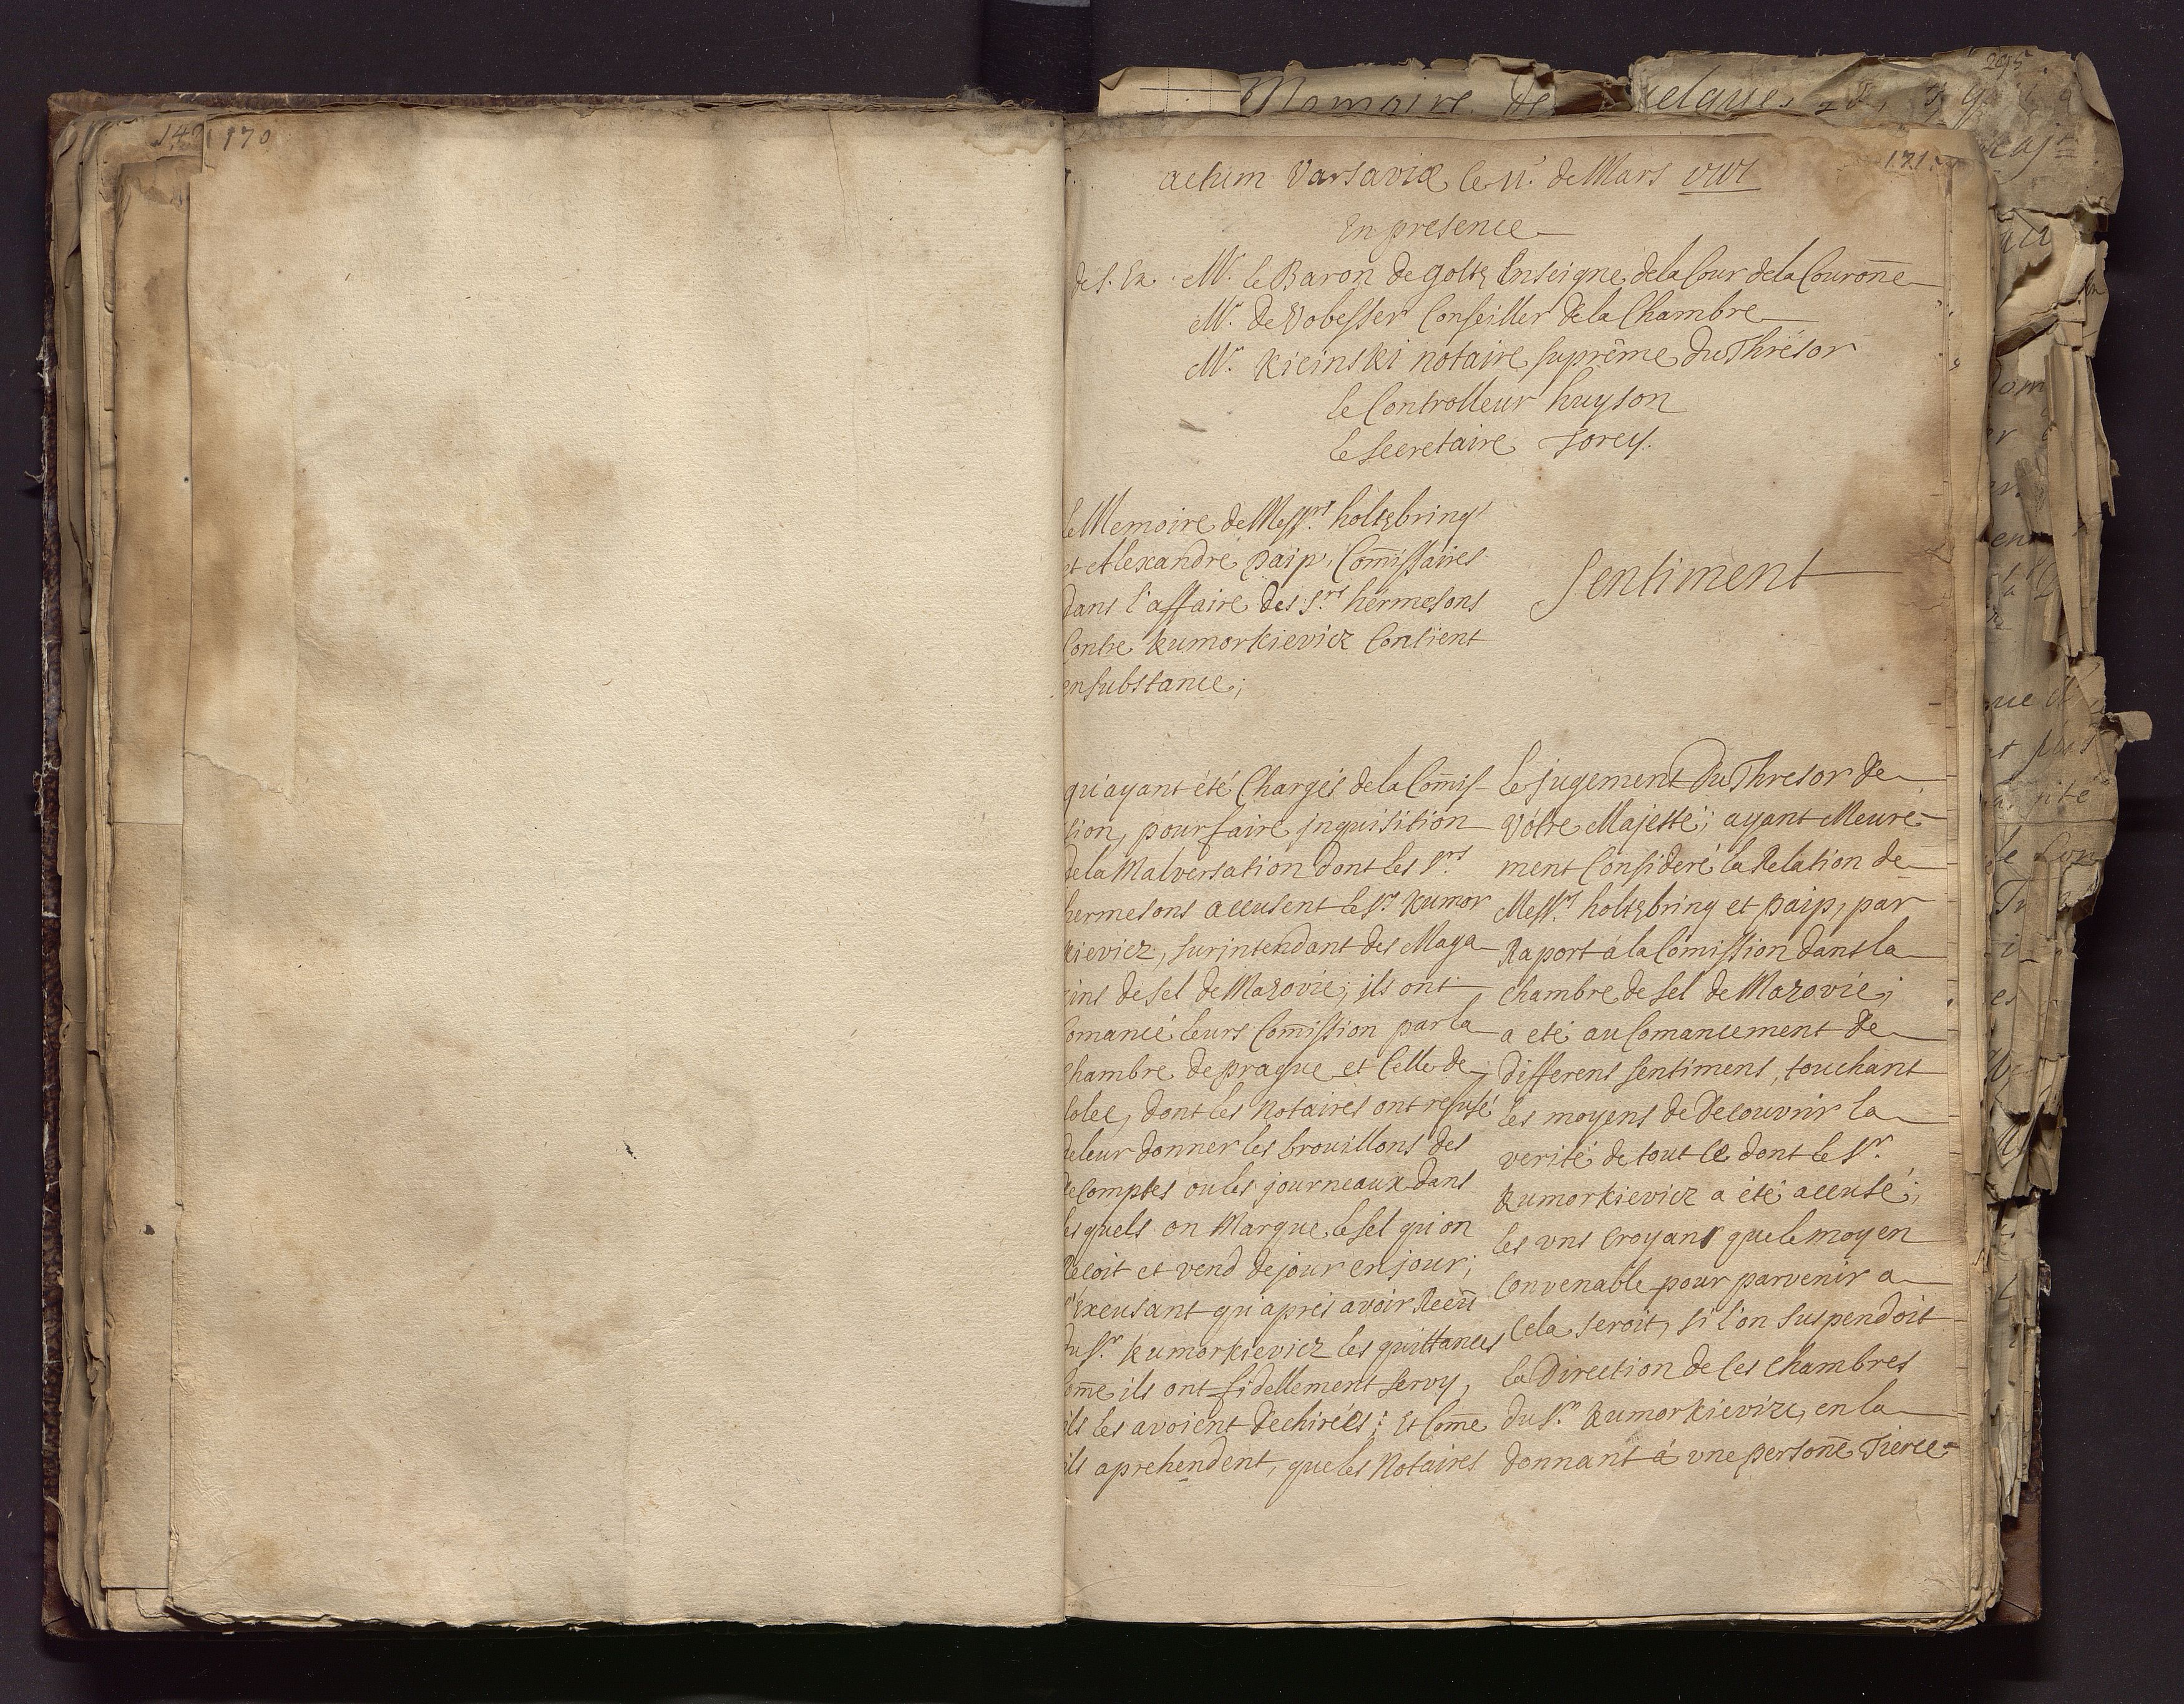 170
171
actum Varsaviæ le 11. de Mars
En presence
de S. Ex. Mr. le Baron de Goltz Enseigne de la Cour de la Couroñe
Mr. de Vobesser Conseiller de la Chambre
Mr. Kicinski notaire suprême du Thrésor
le Controlleur huyson
le Secretaire Torcy.
le Memoire de Messrs. holtzbring
et Alexandre paip, Com̃issaires
dans l'affaire des Srs. hermesons
Contre Kumorkievicz Contient
en substance;
Sentiment
qu'ayant été Chargés de la Com̃is-
sion, pour faire jnquisition
de la Malversation dont les Srs.
hermesons accusent le Sr. Kumor
kievicz, surintendant des Maga
sins de sel de Mazovie; jls ont
comancé leurs Com̃ission par la
Chambre de prague et Celle de
dont les Notaires ont refusé
de leur donner les brouillons des
decomptes ou les journeaux dans
lesquels on Marque le sel qu'on
Recoit et vend de jour en jour;
s'Excusant qu'aprés avoir Reçu
du Sr. Kumorkievicz les quittances
com̃e ils ont fidellement servy,
ils les avoient dechirées; Et Com̃e
ils aprehendent, que les Notaires
Le jugement du Thresor de
Vôtre Majesté; ayant Meure-
ment Consideré la Relation de
Messrs. holtzbring et paip, par
Raport á la Com̃ission dans la
chambre de sel de Mazovie;
a eté au Comancement de
differens sentimens, touchant
les moyens de Decouvrir la
verité de tout ce dont le Sr.
Kumorkievicz a été accusé;
les uns Croyans que le moyen
Convenable pour parvenir a
Cela seroit, si l'on suspendoit
la Direction de ces Chambres
du Sr. Kumorkievicz, en la
donnant á vne persoñe Tierce